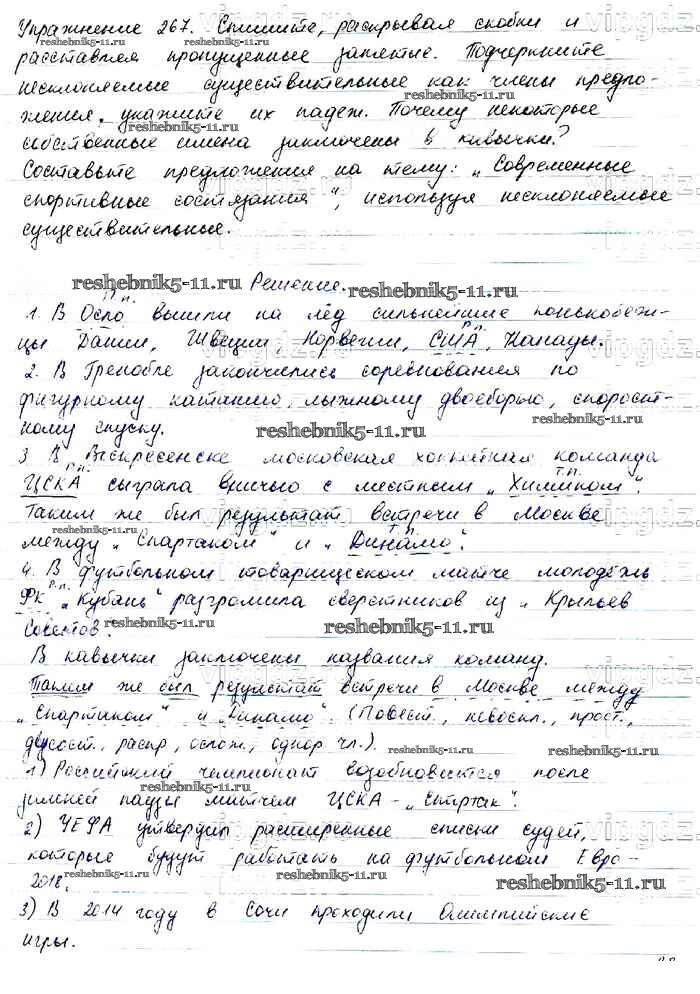 Упражнение 267. Спишите, раскрывая скобки и
reshebnik5-11.ru
расставляя пропущенные запятые. Подчеркните
несклоняемые существительные как члены предло-
reshebnik5-11.ru
жения, укажите их падеж. Почему некоторые
reshebnik5-11.ru
собственные имена заключены в кавычки?
Составьте предложения на тему: „Современные
спортивные состязания“, используя несклоняемые
существительные.
reshebnik5-11.ru Решение.
П.п.
1. В Осло вышли на лёд сильнейшие конькобеж-
Р.п.
цы Дании, Швеции, Норвегии, США, Канады.
2. В Гренобле закончились соревнования по
фигурному катанию, лыжному двоеборью, скорост-
reshebnik5-11.ru
ному спуску.
reshebnik5-11.ru
3 В Воскресенске московская хоккейная команда
Р.п. Т.п.
ЦСКА сыграла вничью с местным „Химиком“.
Таким же был результат встречи в Москве
reshebnik5-11.ru
Т.п.
между „Спартаком“ и „Динамо“.
4. В футбольном товарищеском матче молодёжь
Р.п.
ФК „Кубань“ разгромила сверстников из „Крыльев
Советов“.
reshebnik5-11.ru reshebnik5-11.ru
В кавычки заключены названия команд.
Таким же был результат встречи в Москве между
„Спартаком“ и „Динамо“. (Повест., невоскл., прост.,
двусост., распр, ослож., однор чл.).
reshebnik5-11.ru reshebnik5-11.ru
1) Российский чемпионат возобновится после
зимней паузы матчем ЦСКА - „Спартак“.
2) УЕФА утвердил расширенные списки судей,
которые будут работать на футбольном Евро-
2018.
reshebnik5-11.ru reshebnik5-11.ru
3) В 2014 году в Сочи проходили Олимпийские
reshebnik5-11.ru
игры.
vipgdz.ru